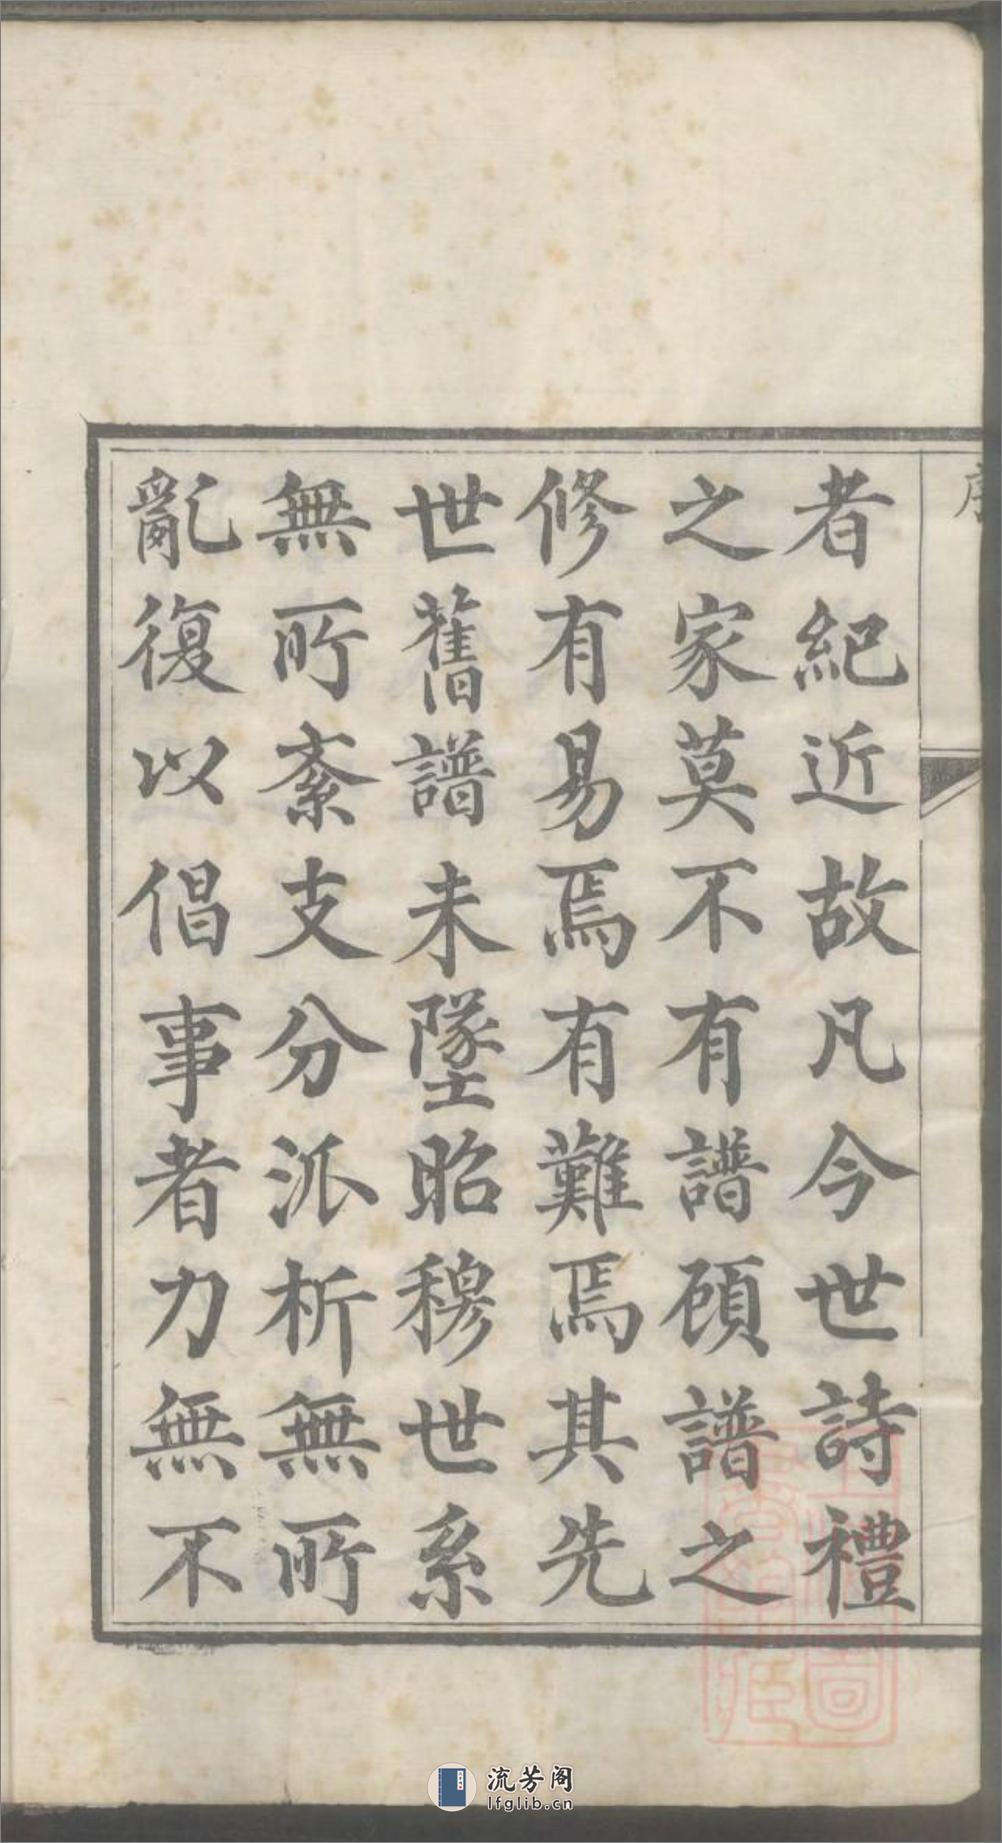 序
者紀近故凡今世詩禮
之家莫不有譜顧譜之
修有易焉有難焉其先
世舊譜未墜昭穆世系
無所紊支分派析無所
亂復以倡事者力無不
流芳阁
lfglib.cn